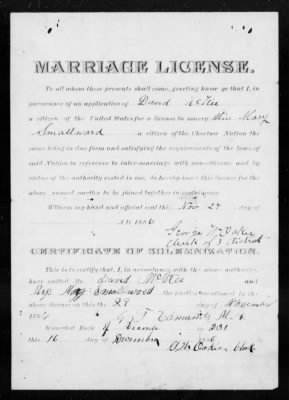 MARRIAGE LICENSE.
To all whom these presents shall come, greeting know ye that I, in
pursuance of an application of David McKee
a citizen of the United States for a license to marry Miss Mary
Smallwood a citizen of the Choctaw Nation the
same being in due form and satisfying the requirements of the laws of
said Nation in reference to inter-marriage with non-citizens and by
virtue of the authority vested in me, do hereby issue this license for the
above named parties to be joined together in matrimony.
Witness my hand and official seal this Nov 27 day of
A.D. 1886
George W
Clerk of 3 District
CERTIFICATE OF SOLEMNIZATION.
This is to certify that, I, in accordance with the above authority,
have united Mr. David McKee and
Miss Mary Smallwood the parties mentioned in the
above license on this the 28 day of November
1886
Recorded Book of License 231
this 16 day of December 1886
Clerk